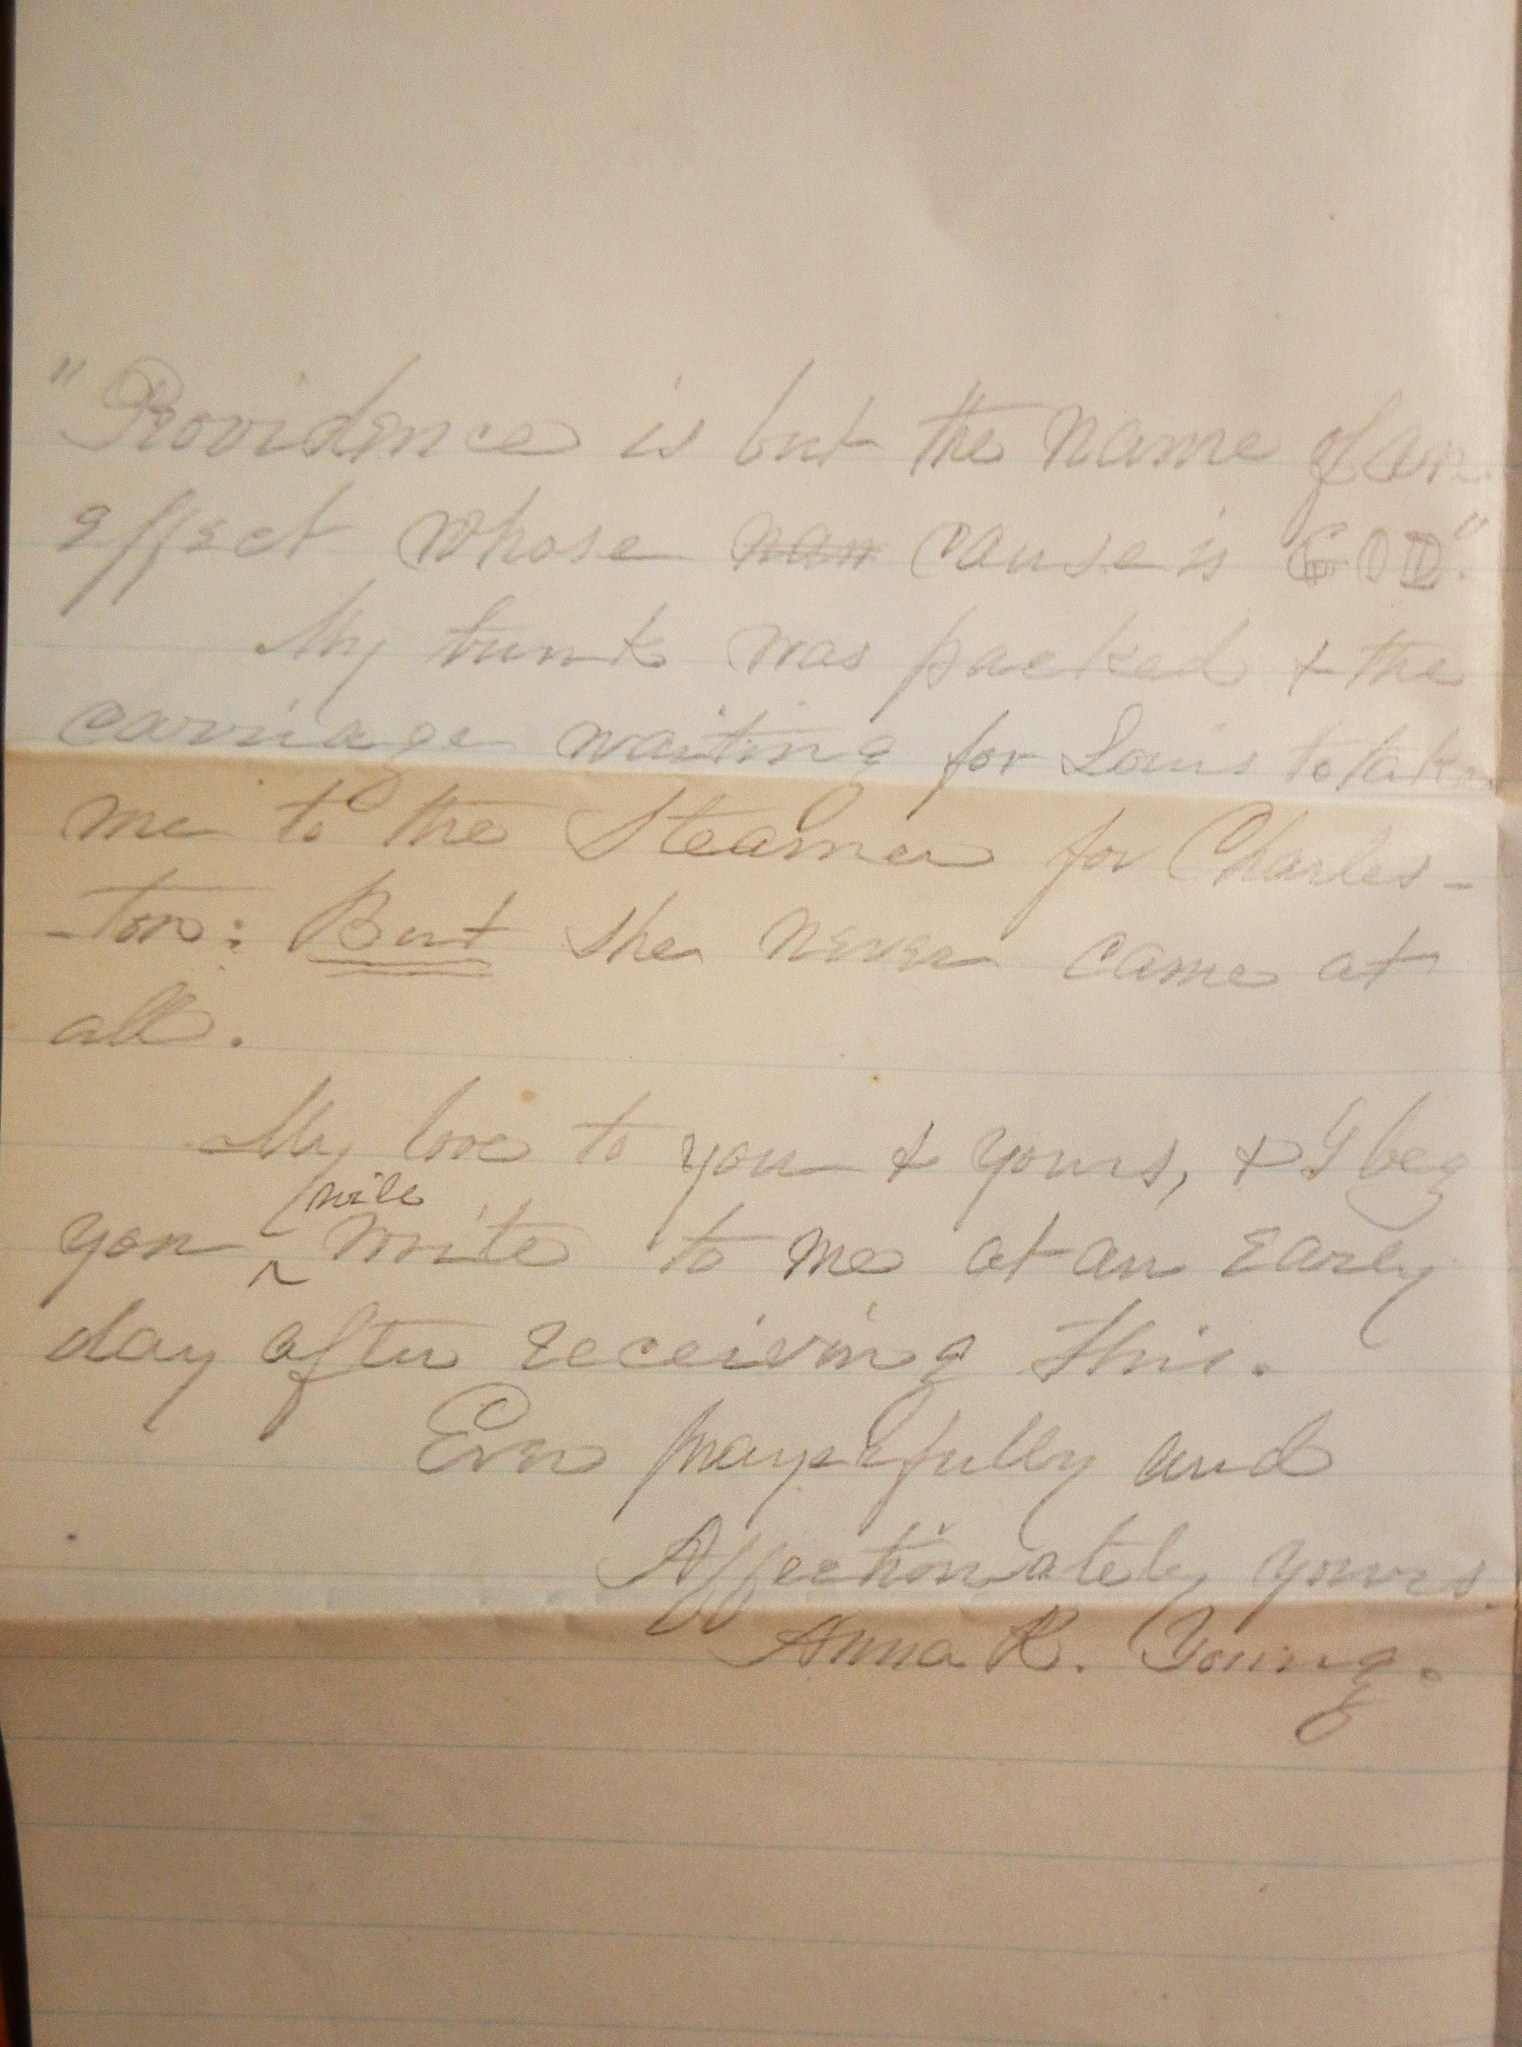 "Providence is but the name of an
effect whose nam cause is GOD."
My trunk was packed & the
carriage waiting for Louis to take
me to the Steamer for Charles-
-ton: But she never came at
all.
My love to you & yours, & I beg
will
you ^ write to me at an early
day after receiving this.
Ever prayerfully and
Affectionately yours.
Anna R. Young.